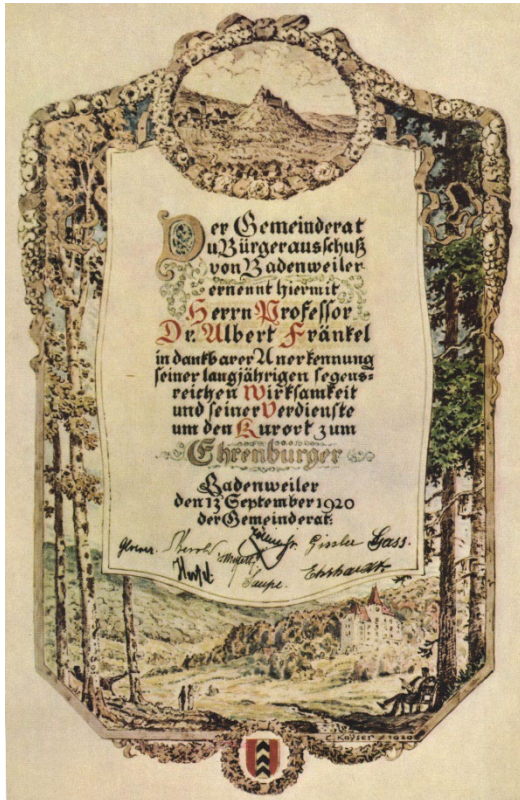 Der Gemeinderat
u Bürgerausschuß
von Badenweiler
ernennt hiermit
Herrn Professor
Dr. Albert Fränkel
in dankbarer Anerkennung
seiner langjährigen segens=
reichen Wirksamkeit
und seiner Verdienste
um den Kurort zum
Ehrenbürger
Badenweiler
den 13 September 1920
der Gemeinderat:
Gissler Gass.
Ehrhardt
C. Kayser / 1920